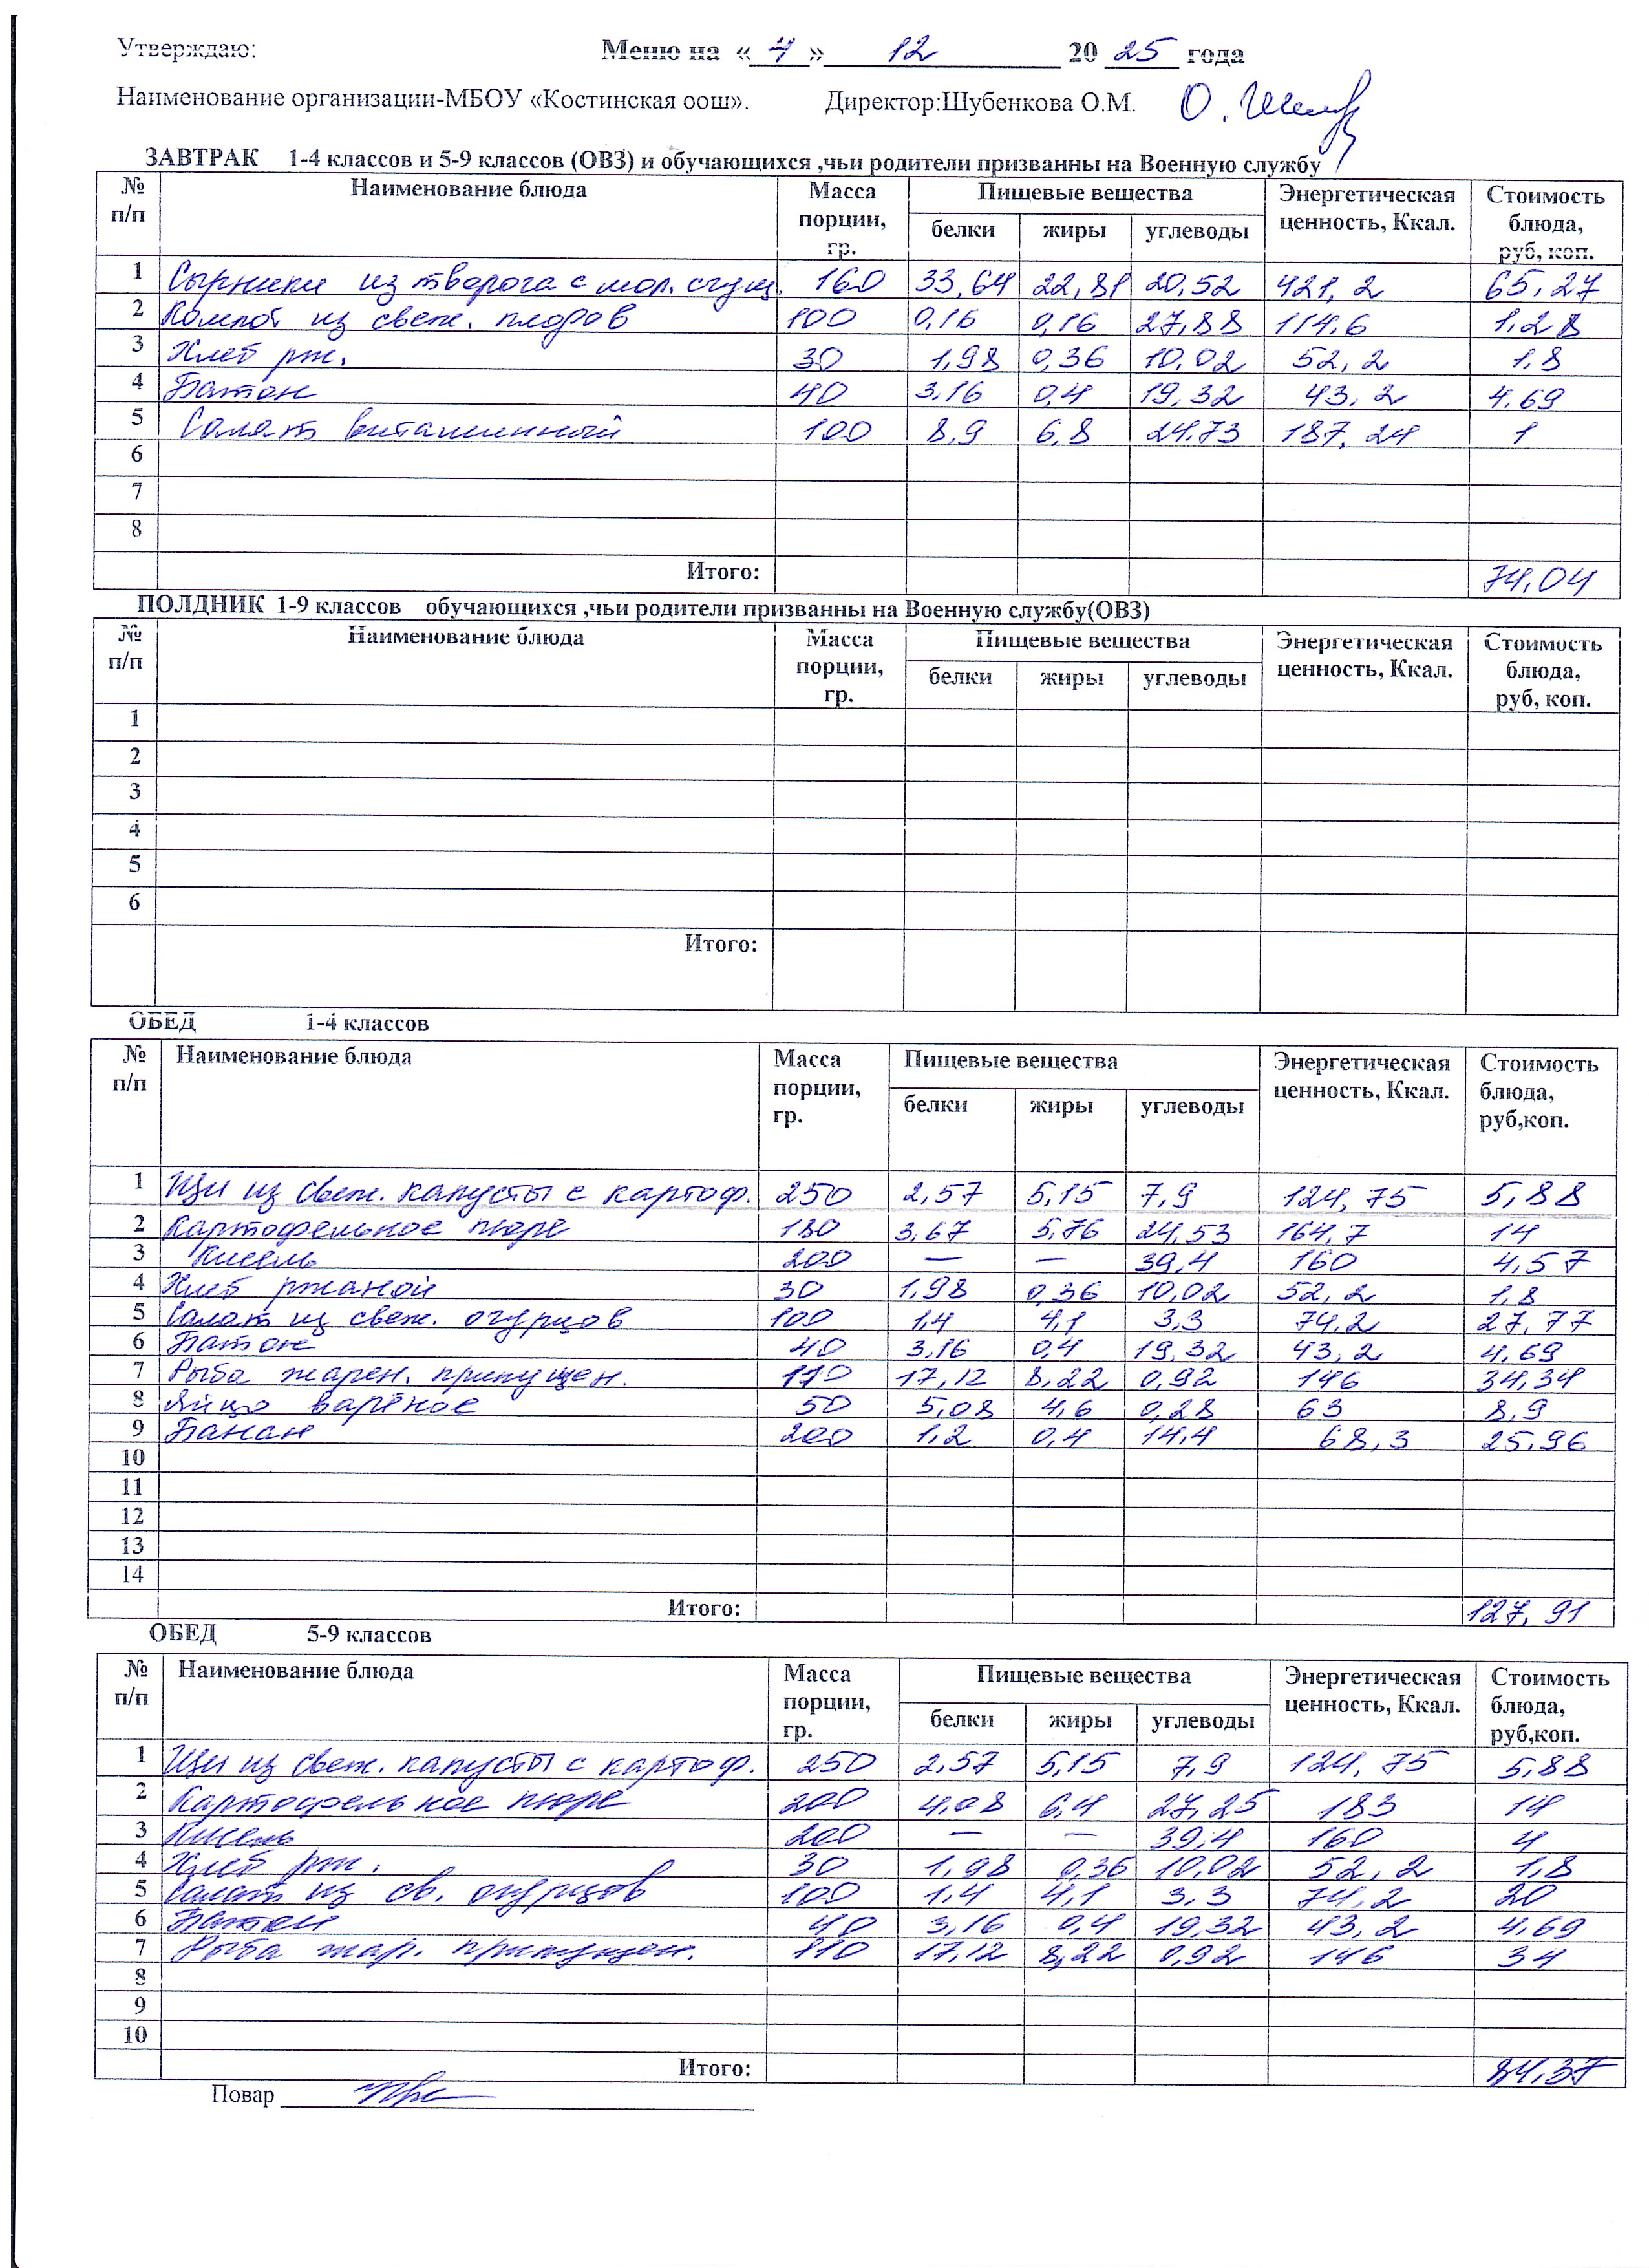 Утверждаю: Меню на «4» 12 20 25 года
Наименование организации-МБОУ «Костинская оош». Директор:Шубенкова О.М.
ЗАВТРАК 1-4 классов и 5-9 классов (ОВЗ) и обучающихся ,чьи родители призванны на Военную службу
№ п/п Наименование блюда Масса порции, гр. Пищевые вещества Энергетическая ценность, Ккал. Стоимость блюда, руб, коп.
белки жиры углеводы
1 Сырники из творога с мол. сгущ. 160 33,64 22,81 20,52 421,2 65,27
2 Компот из свеж. плодов 100 0,16 0,16 27,88 114,6 1,28
3 Хлеб рж. 30 1,98 0,36 10,02 52,2 1,8
4 Батон 40 3,16 0,4 19,32 43,2 4,69
5 Салат витаминный 100 8,9 6,8 24,73 187,24 1
6
7
8
Итого: 74,04
ПОЛДНИК 1-9 классов обучающихся ,чьи родители призванны на Военную службу(ОВЗ)
№ п/п Наименование блюда Масса порции, гр. Пищевые вещества Энергетическая ценность, Ккал. Стоимость блюда, руб, коп.
белки жиры углеводы
1
2
3
4
5
6
Итого:
ОБЕД 1-4 классов
№ п/п Наименование блюда Масса порции, гр. Пищевые вещества Энергетическая ценность, Ккал. Стоимость блюда, руб,коп.
белки жиры углеводы
1 Щи из свеж. капусты с картоф. 250 2,57 5,15 7,9 124,75 5,88
2 Картофельное пюре 180 3,67 5,76 24,53 164,7 14
3 Кисель 200 — — 39,4 160 4,57
4 Хлеб ржаной 30 1,98 0,36 10,02 52,2 1,8
5 Салат из свеж. огурцов 100 1,4 4,1 3,3 74,2 27,77
6 Батон 40 3,16 0,4 19,32 43,2 4,69
7 Рыба жарен. припущен. 110 17,12 8,22 0,92 146 34,34
8 Яйцо варёное 50 5,08 4,6 0,28 63 8,9
9 Банан 200 1,2 0,4 14,4 68,3 25,96
10
11
12
13
14
Итого: 127,91
ОБЕД 5-9 классов
№ п/п Наименование блюда Масса порции, гр. Пищевые вещества Энергетическая ценность, Ккал. Стоимость блюда, руб,коп.
белки жиры углеводы
1 Щи из свеж. капусты с картоф. 250 2,57 5,15 7,9 124,75 5,88
2 Картофельное пюре 200 4,08 6,4 27,25 183 14
3 Кисель 200 — — 39,4 160 4
4 Хлеб рж. 30 1,98 0,36 10,02 52,2 1,8
5 Салат из св. огурцов 100 1,4 4,1 3,3 74,2 20
6 Батон 40 3,16 0,4 19,32 43,2 4,69
7 Рыба жар. припущен. 110 17,12 8,22 0,92 146 34
8
9
10
Итого: 84,37
Повар